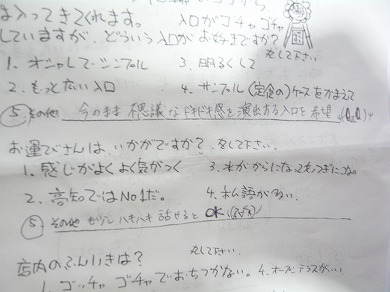 は入ってきてくれます。 入口がゴチャゴチャ
していますが、どういう入口がお好きですか?
をして下さい
1. オシャレでシンプル 3. 明るくして
2. もっと広い入口 4. サンプル(定食の)ケースをかまえて
⑤ その他 今のまま 不思議なドキドキ感を演出する入口を希望
お運びさんは、いかがですか? をして下さい。
1. 感じがよくよく気がつく
2. 高知ではNo1だ。 4. 私語が
⑤ その他 もう少しハキハキ話せると OK
店内のふんいきは? 丸して下さい
1. ゴッチャゴチャでおちつかない。 4. オープンテラスがいい